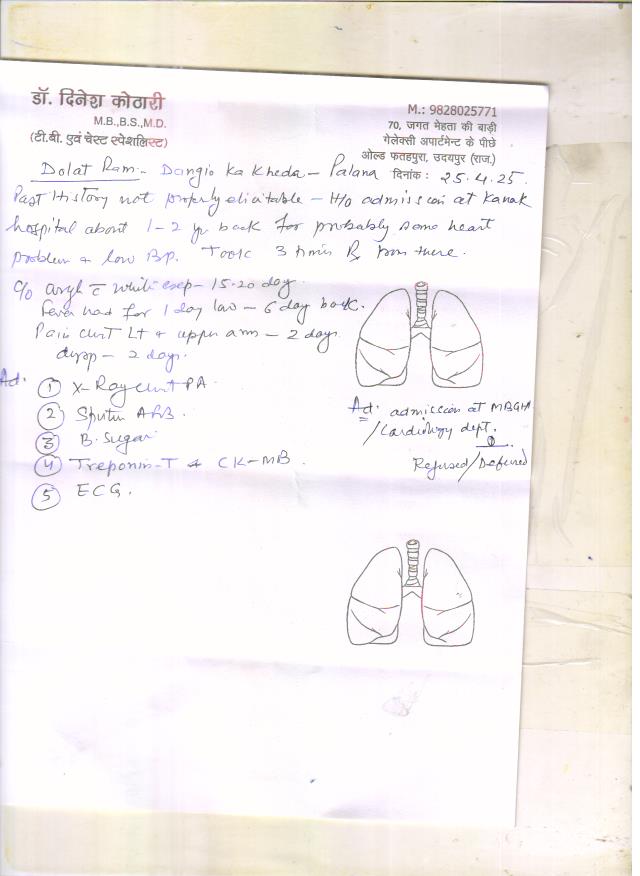 डॉ. दिनेश कोठारी
M.B.,B.S.,M.D.
(टी.बी. एवं चेस्ट स्पेशलिस्ट)
M.: 9828025771
70, जगत मेहता की बाड़ी
गेलेक्सी अपार्टमेन्ट के पीछे
ओल्ड फतहपुरा, उदयपुर (राज.)
Dolat Ram - Dangio ka kheda - Palana दिनांक: 25.4.25.
Past History not properly elicitable - H/o admission at Kanak
hospital about 1-2 yr back for probably some heart
problem & low BP. Took 3 Rx from there.
C/o c white exp - 15-20 day
Fever had for 1 day - 6 day back.
Pain chest Lt & upper arm - 2 days
dysp - 2 days.
Ad:
① X-Ray chest PA
② Sputum AFB.
③ B. Sugar
④ Treponin-T & CK-MB.
⑤ ECG.
Ad: admission at MBGH
/Cardiology dept.
Refused/Deferred